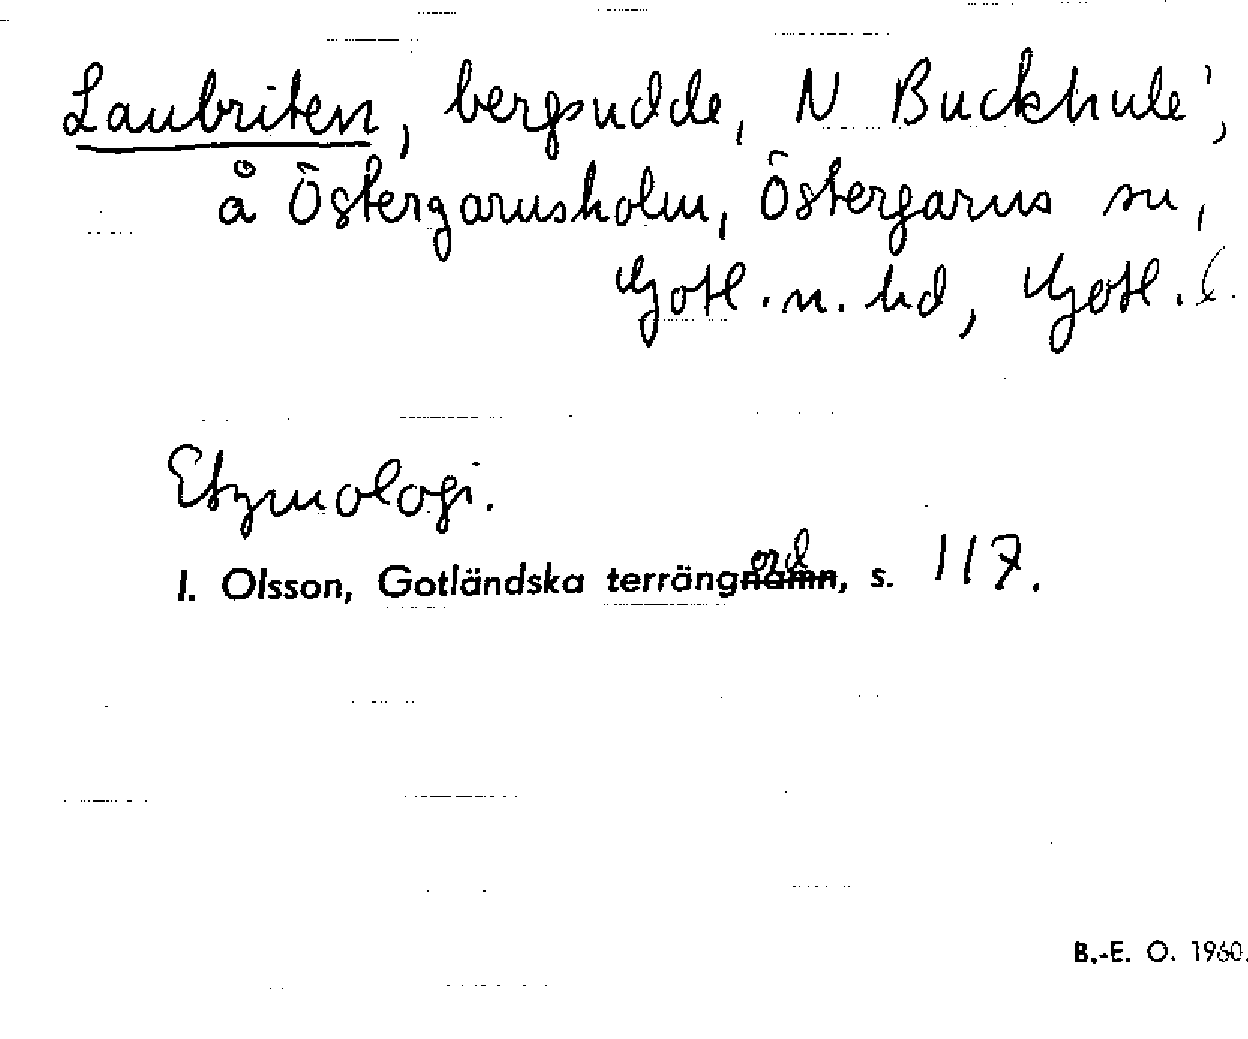 Laubriten, bergudde, N Buckhule',
å Östergarnsholm, Östergarns sn,
Gotl. n. hd, Gotl. l.
Etymologi.
I. Olsson, Gotländska terrängord, s. 117.
B.-E. O. 1960.